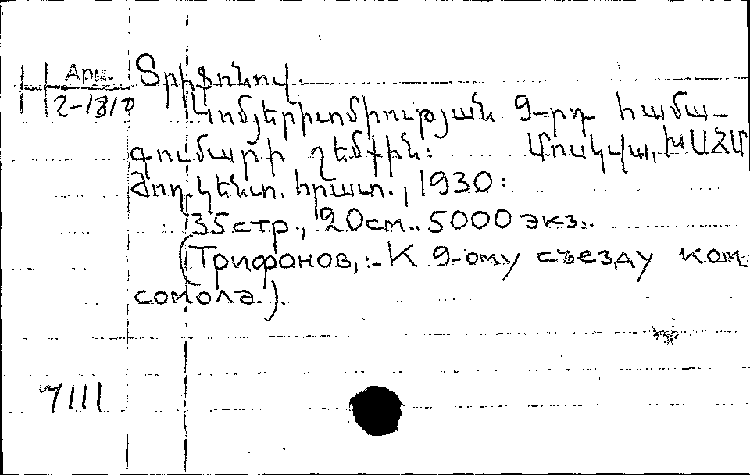 Арм.
2-1310
Տրիֆոնով.
Կոմյերիտմիության 9-րդ համա-
գումարի շեմքին: Մոսկվա, ԽՍՀՄ
Ժող. կենտ. հրատ., 1930:
35 стр., 20 см.. 5000 экз.
(Трифонов, :- К 9-ому съезду ком-
сомола.).
7111